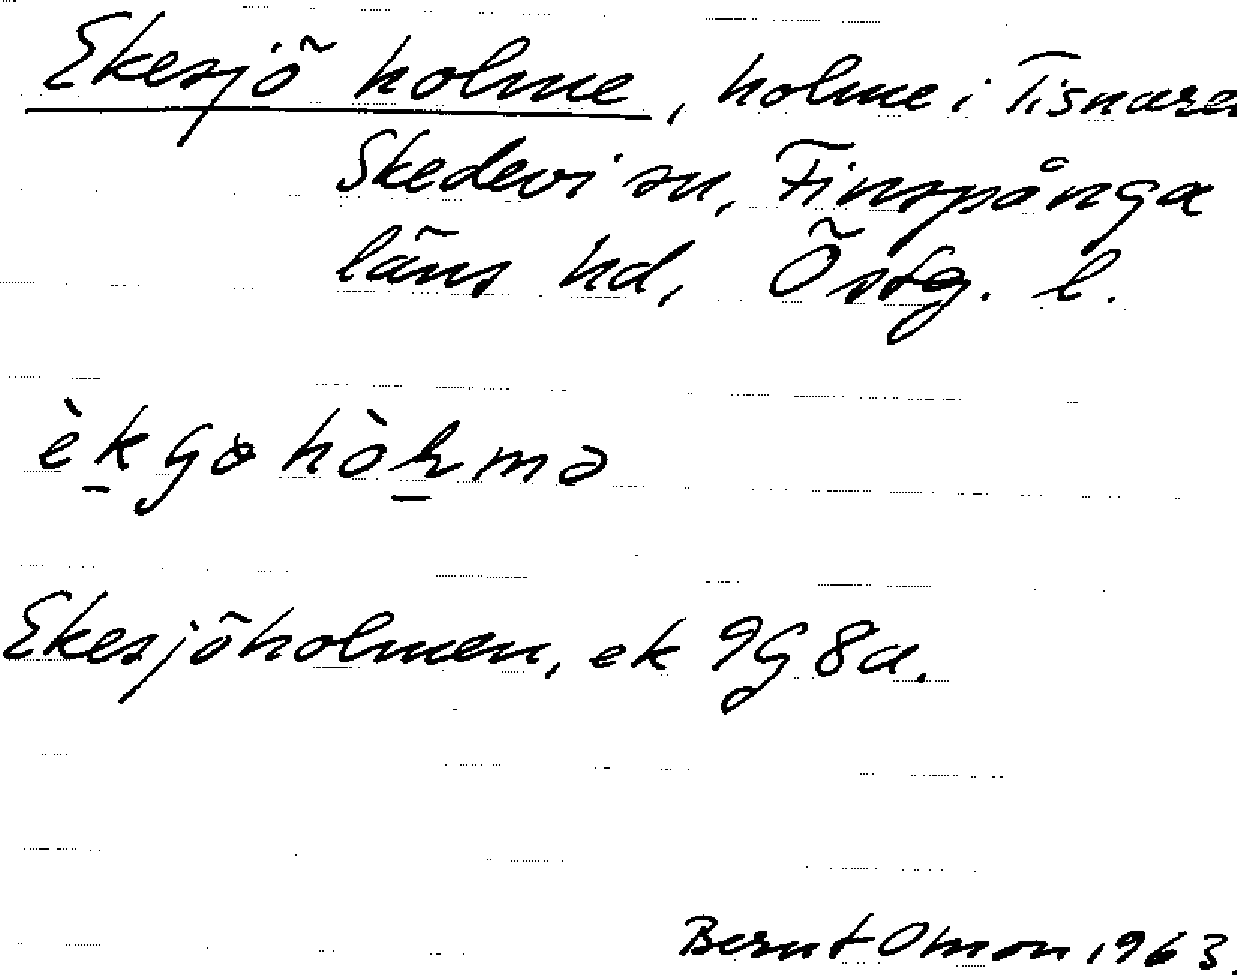 Ekesjö holme, holme i Tisnaren
Skedevi sn, Finspånga
läns hd, Östg. l.
Ekesjöholmen, ek 9G 8a.
Bernt Oman 1963.